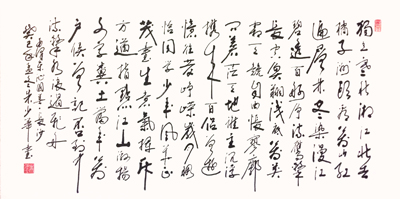 独立寒秋湘江北去
橘子洲头看万山红
遍层林尽染漫江
碧透百舸争流鹰击
长空鱼翔浅底万类
霜天竞自由怅寥廓
问苍茫大地谁主沉浮
携来百侣曾游
忆往昔峥嵘岁月稠
恰同学少年风华正
茂书生意气挥斥
方遒指点江山激扬
文字粪土当年万
户侯曾记否到中
流击水浪遏飞舟
毛泽东沁园春长沙
癸巳年书